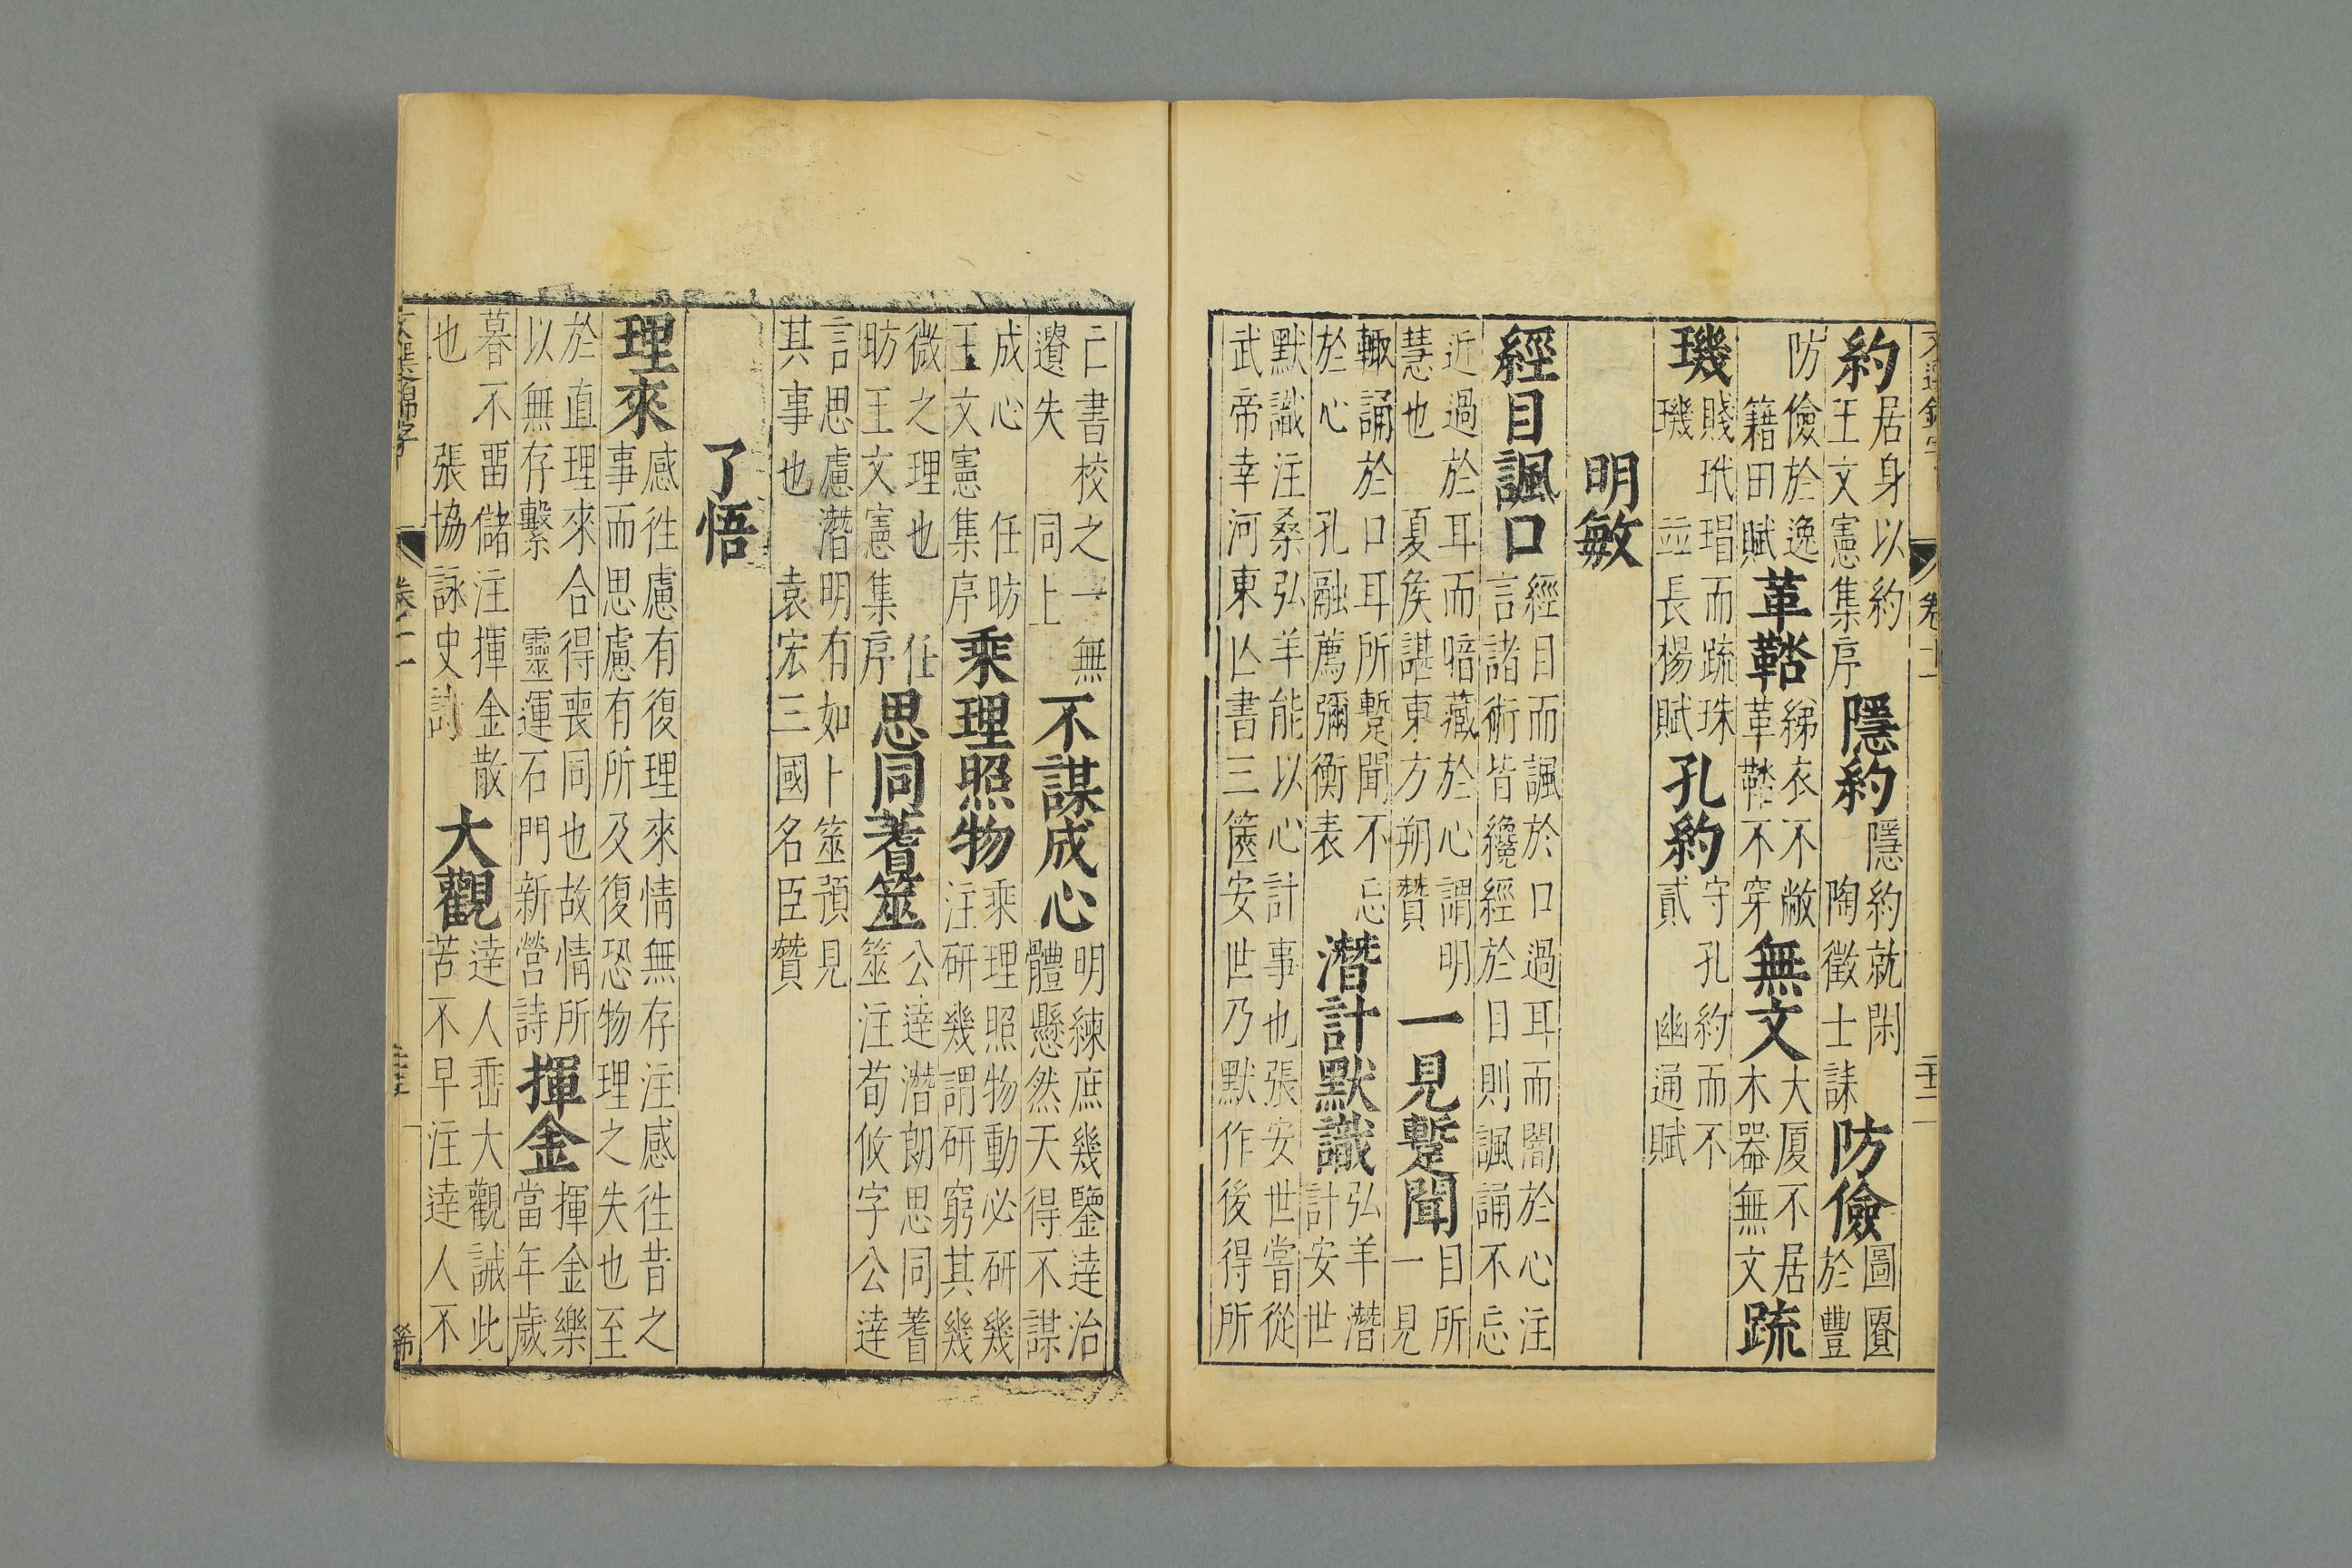 約居身以約王文憲集序隱約隱約就閑陶徵士誄防儉圖匱於豐
防儉於逸籍田賦革鞜綈衣不敝革鞜不穿無文大厦不居木器無文疏
璣賤玳瑁而疏珠璣並長楊賦孔約守孔約而不貳幽通賦
明敏
經目諷口經目而諷於口過耳而闇於心注言諸術皆纔經於目則諷誦不忘
近過於耳而暗藏於心謂明慧也夏矦諶東方朔贊一見蹔聞目所一見
輙誦於口耳所蹔聞不忘於心孔融薦彌衡表潛計默識弘羊潛計安世
默識注桑弘羊能以心計事也張安世嘗從武帝幸河東亾書三篋安世乃默作後得所
亡書校之一無遺失同上不謀成心明練庶幾鑒達治體懸然天得不謀
成心任昉王文憲集序乘理照物乘理照物動必研幾注研幾謂研窮其幾
微之理也任昉王文憲集序思同蓍筮公達潛朗思同蓍筮注荀攸字公達
言思慮潛明有如卜筮預見其事也袁宏三國名臣贊
了悟
理來感徃慮有復理來情無存注感徃昔之事而思慮有所及復恐物理之失也至
於直理來合得喪同也故情所以無存繫靈運石門新營詩揮金揮金樂當年歲
暮不畱儲注揮金散也張協詠史詩大觀達人垂大觀誡此苦不早注達人不
卷十一